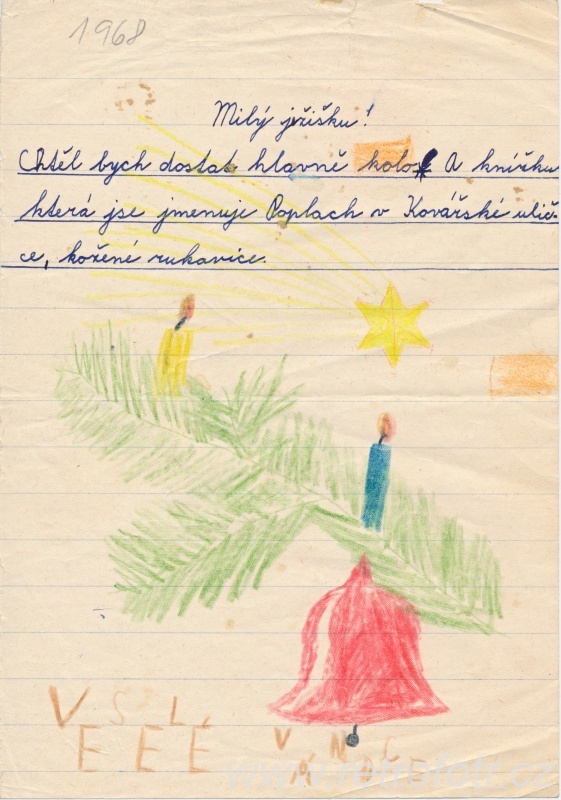 1968
Milý ježišku!
Chtěl bych dostat hlavně kolo. A knížku
která jse jmenuje Poplach v Kovářské ulič-
ce, kožené rukavice.
VESELÉ VÁNOCE
www.retrofotr.cz